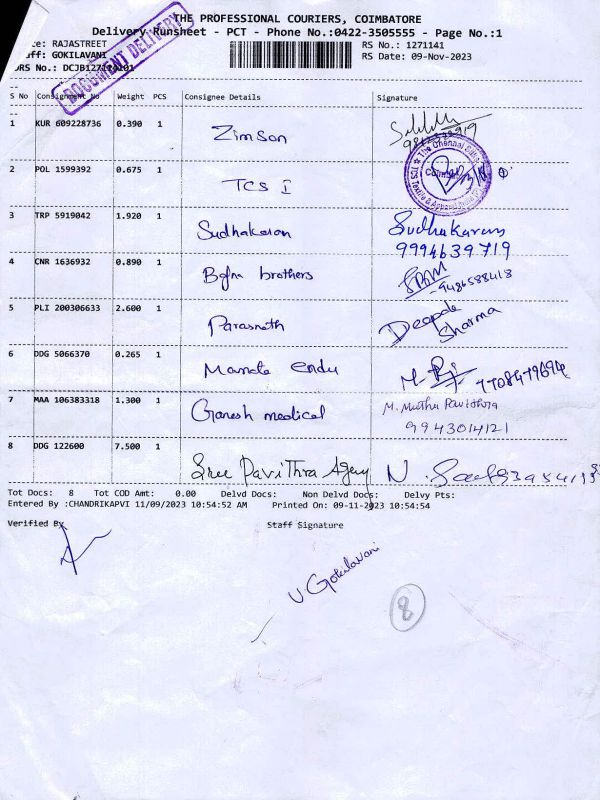 THE PROFESSIONAL COURIERS, COIMBATORE
Delivery Runsheet - PCT - Phone No.:0422-3505555 - Page No.:1
RAJASTREET RS No.: 1271141
GOKILAVANI RS Date: 09-Nov-2023
DRS No.:
DOCUMENT DELIVERY
S No Consignment No Weight PCS Consignee Details Signature
1 KUR 609228736 0.390 1 Zimson
2 POL 1599392 0.675 1 TCS I
The Chennai Silks
3 TRP 5919042 1.920 1 Sudhakaran Sudhakaran
9994639719
4 CNR 1636932 0.890 1 brothers
9486588418
5 PLI 200306633 2.600 1 Parasnath Deepak
Sharma
6 DDG 5066370 0.265 1 M.
7 MAA 106383318 1.300 1 Ganesh medical M. Muthu
9943014121
8 DDG 122600 7.500 1 Sree Pavithra Agency N.
Tot Docs: 8 Tot COD Amt: 0.00 Delvd Docs: Non Delvd Docs: Delvy Pts:
Entered By :CHANDRIKAPVI 11/09/2023 10:54:52 AM Printed On: 09-11-2023 10:54:54
Verified By Staff Signature
V Gokilavani
8